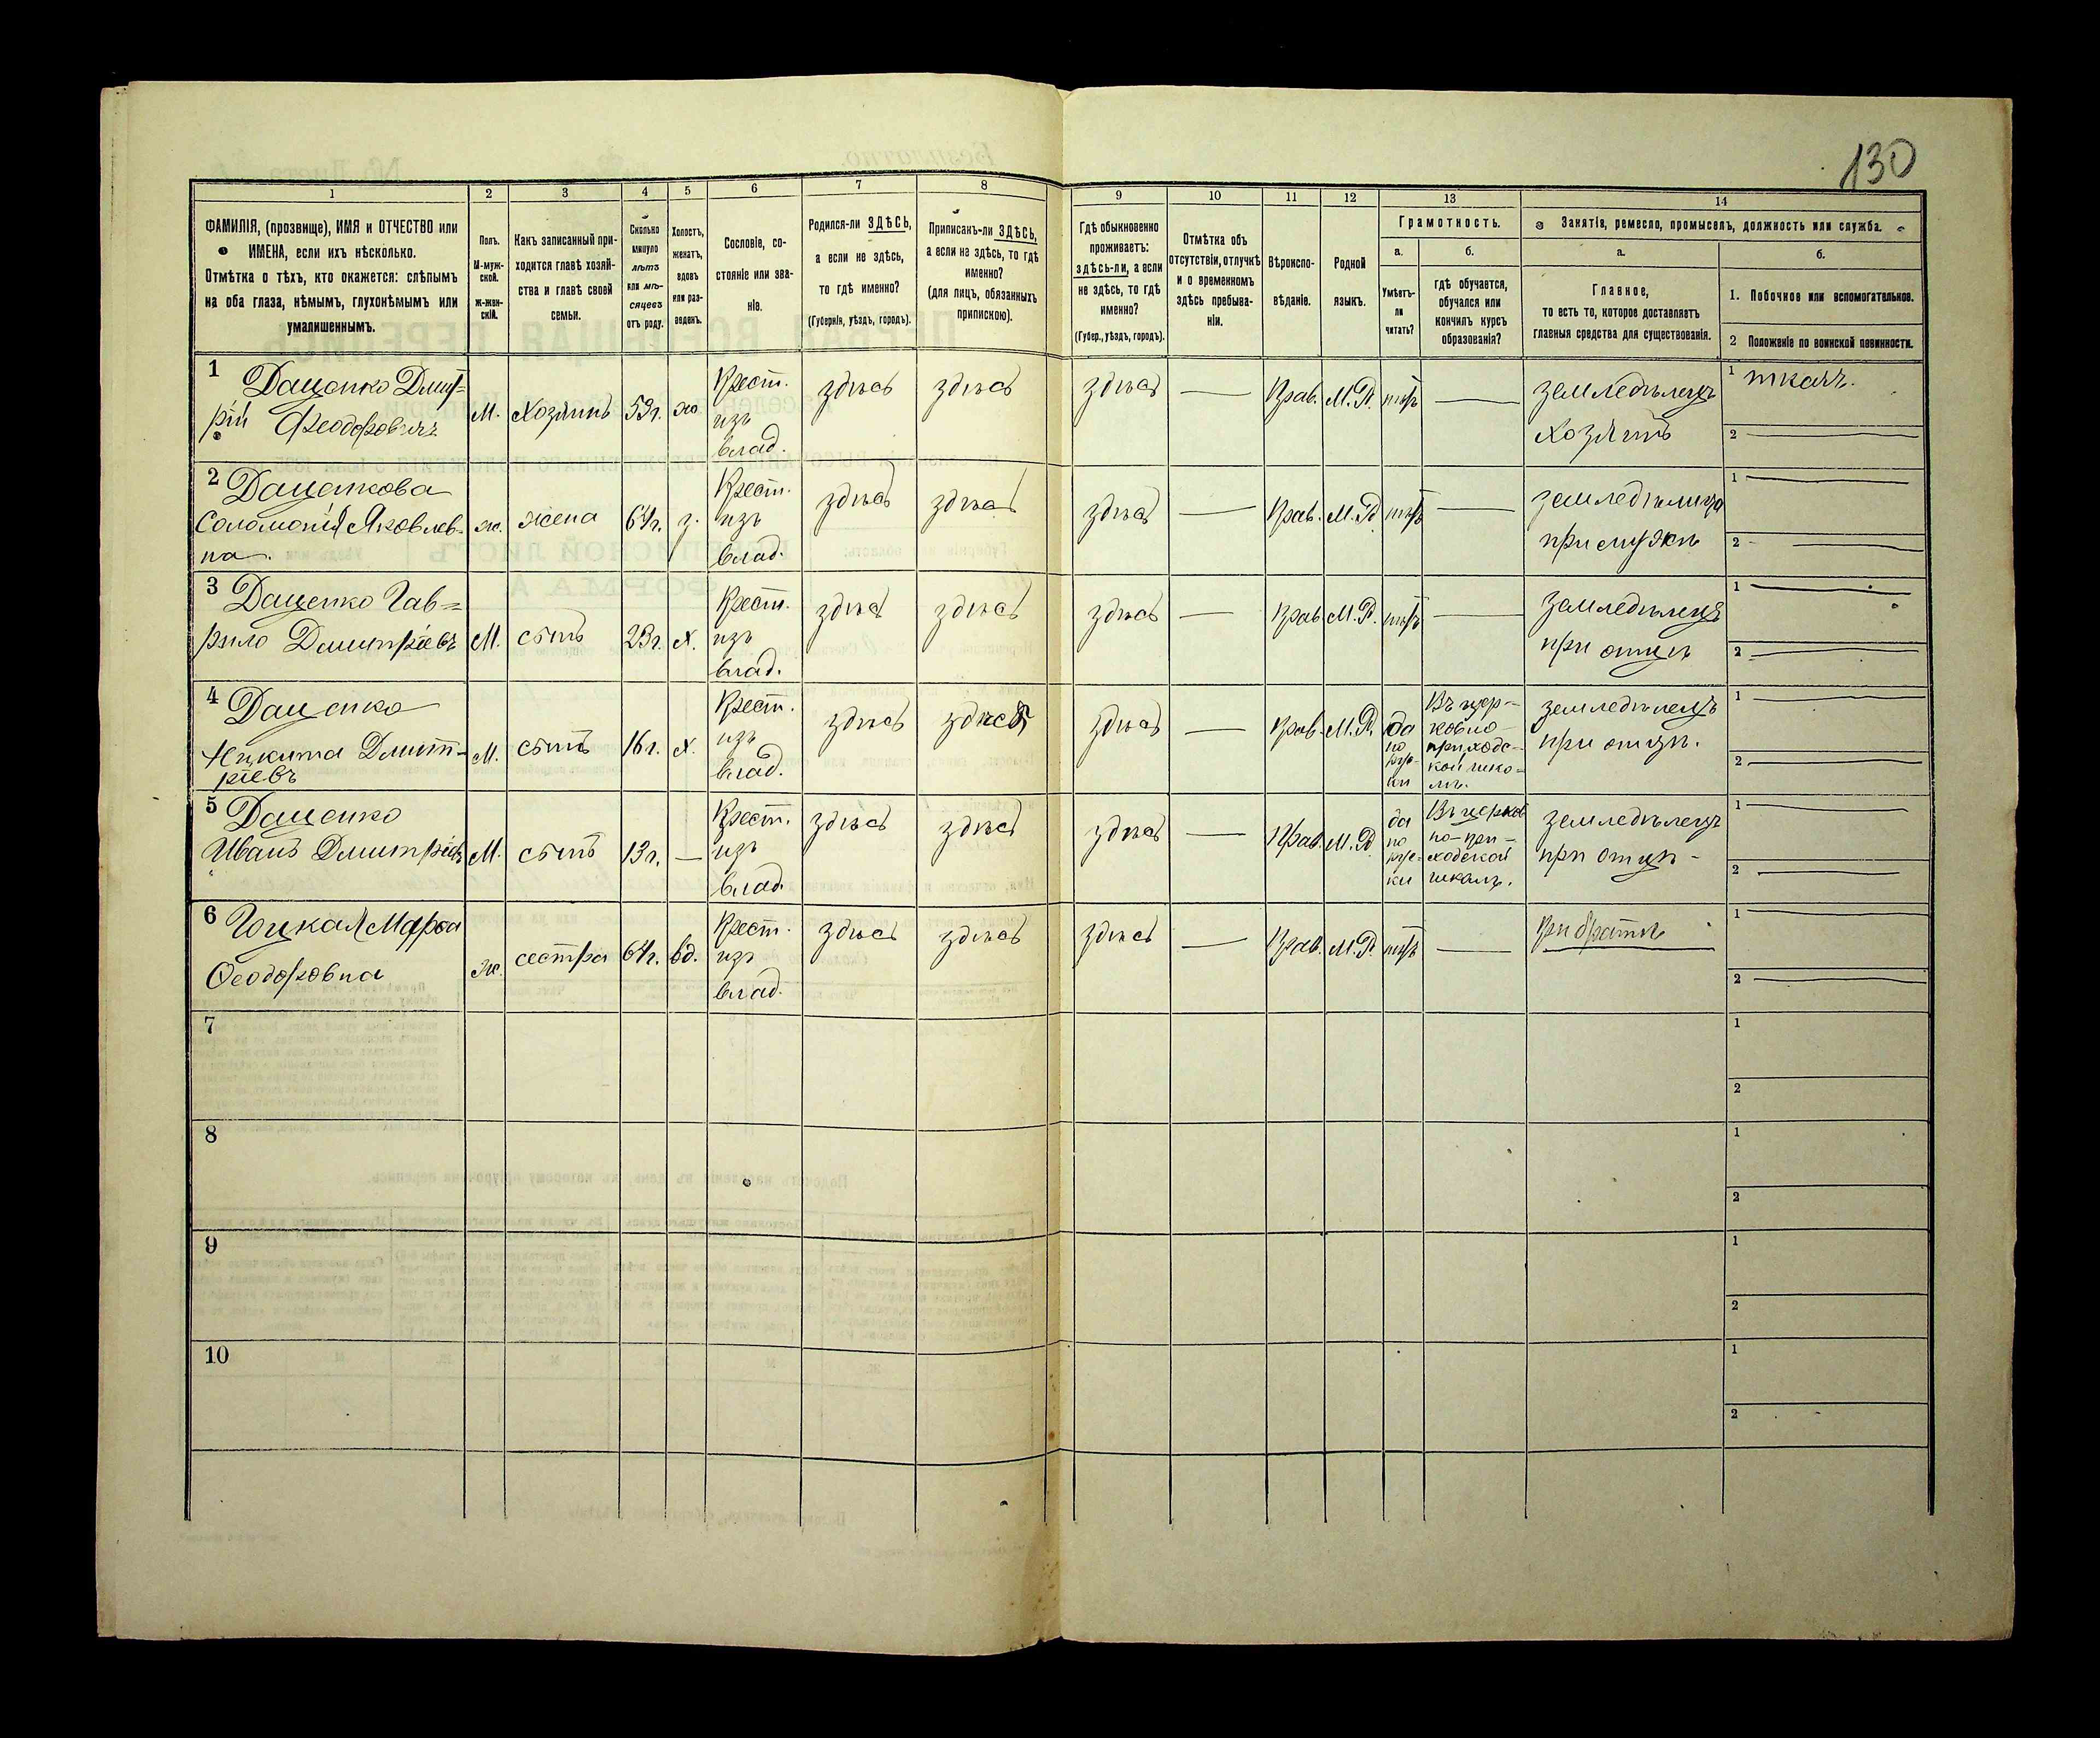 130
1 2 3 4 5 6 7 8 9 10 11 12 13 14
ФАМИЛІЯ, (прозвище), ИМЯ и ОТЧЕСТВО или
ИМЕНА, если ихъ нѣсколько.
Отмѣтка о тѣхъ, кто окажется: слѣпымъ
на оба глаза, нѣмымъ, глухонѣмымъ или
умалишеннымъ.
Полъ.
М-муж-
ской.
Ж-жен-
скій.
Какъ записанный при-
ходится главѣ хозяй-
ства и главѣ своей
семьи.
Сколько
минуло
лѣтъ
или мѣ-
сяцевъ
отъ роду.
Холостъ,
женатъ,
вдовъ
или раз-
веденъ.
Сословіе, со-
стояніе или зва-
ніе.
Родился-ли ЗДѢСЬ,
а если не здѣсь,
то гдѣ именно?
(Губернія, уѣздъ, городъ).
Приписанъ-ли ЗДѢСЬ,
а если не здѣсь, то гдѣ
именно?
(для лицъ, обязанныхъ
припискою).
Гдѣ обыкновенно
проживаетъ:
здѣсь-ли, а если
не здѣсь, то гдѣ
именно?
(Губер., уѣздъ, городъ).
Отмѣтка объ
отсутствіи, отлучкѣ
и о временномъ
здѣсь пребыва-
ніи.
Вѣроиспо-
вѣданіе.
Родной
языкъ.
Грамотность.
а.
Умѣетъ-
ли
читать?
б.
гдѣ обучается,
обучался или
кончилъ курсъ
образованія?
Занятія, ремесло, промыселъ, должность или служба.
а.
Главное,
то есть то, которое доставляетъ
главныя средства для существованія.
б.
1. Побочное или вспомогательное.
2 Положеніе по воинской повинности.
1
Даценко Дмит=
рій Феодоровичъ
М.
Хозяинъ
59 г.
ж
Крест.
изъ
влад.
здѣсь
здѣсь
здѣсь
Прав.
М.Р.
нѣтъ
земледѣлецъ
хозяинъ
1 ткачъ.
2
2
Даценкова
Соломонія Яковлев-
на.
ж.
жена
64 г.
з.
Крест.
изъ
влад.
здѣсь
здѣсь
здѣсь
Прав.
М.Р.
нѣтъ
земледѣлица
при мужѣ
1
2
3
Даценко Гав=
рило Дмитріевъ
М.
сынъ
23 г.
х.
Крест.
изъ
влад.
здѣсь
здѣсь
здѣсь
Прав
М.Р.
нѣтъ
земледѣлецъ
при отцѣ
1
2
4
Даценко
Никита Дмит-
ріевъ
М.
сынъ
16 г.
х.
Крест.
изъ
влад.
здѣсь
здѣсь
здѣсь
Прав.
М.Р.
да
по
рус-
ки
Въ цер-
ковно-
приходс-
кой шко-
лѣ.
земледѣлецъ
при отцѣ.
1
2
5
Даценко
Иванъ Дмитріевъ
М.
сынъ
13 г.
Крест.
изъ
влад.
здѣсь
здѣсь
здѣсь
Прав.
М.Р.
да
по
рус-
ки
Въ церков
но-при-
ходской
школѣ.
земледѣлецъ
при отцѣ-
1
2
6
Феодоровна
ж.
сестра
64 г.
вд.
Крест.
изъ
влад.
здѣсь
здѣсь
здѣсь
Прав.
М.Р.
нѣтъ
при братѣ
1
2
7
1
2
8
1
2
9
1
2
10
1
2